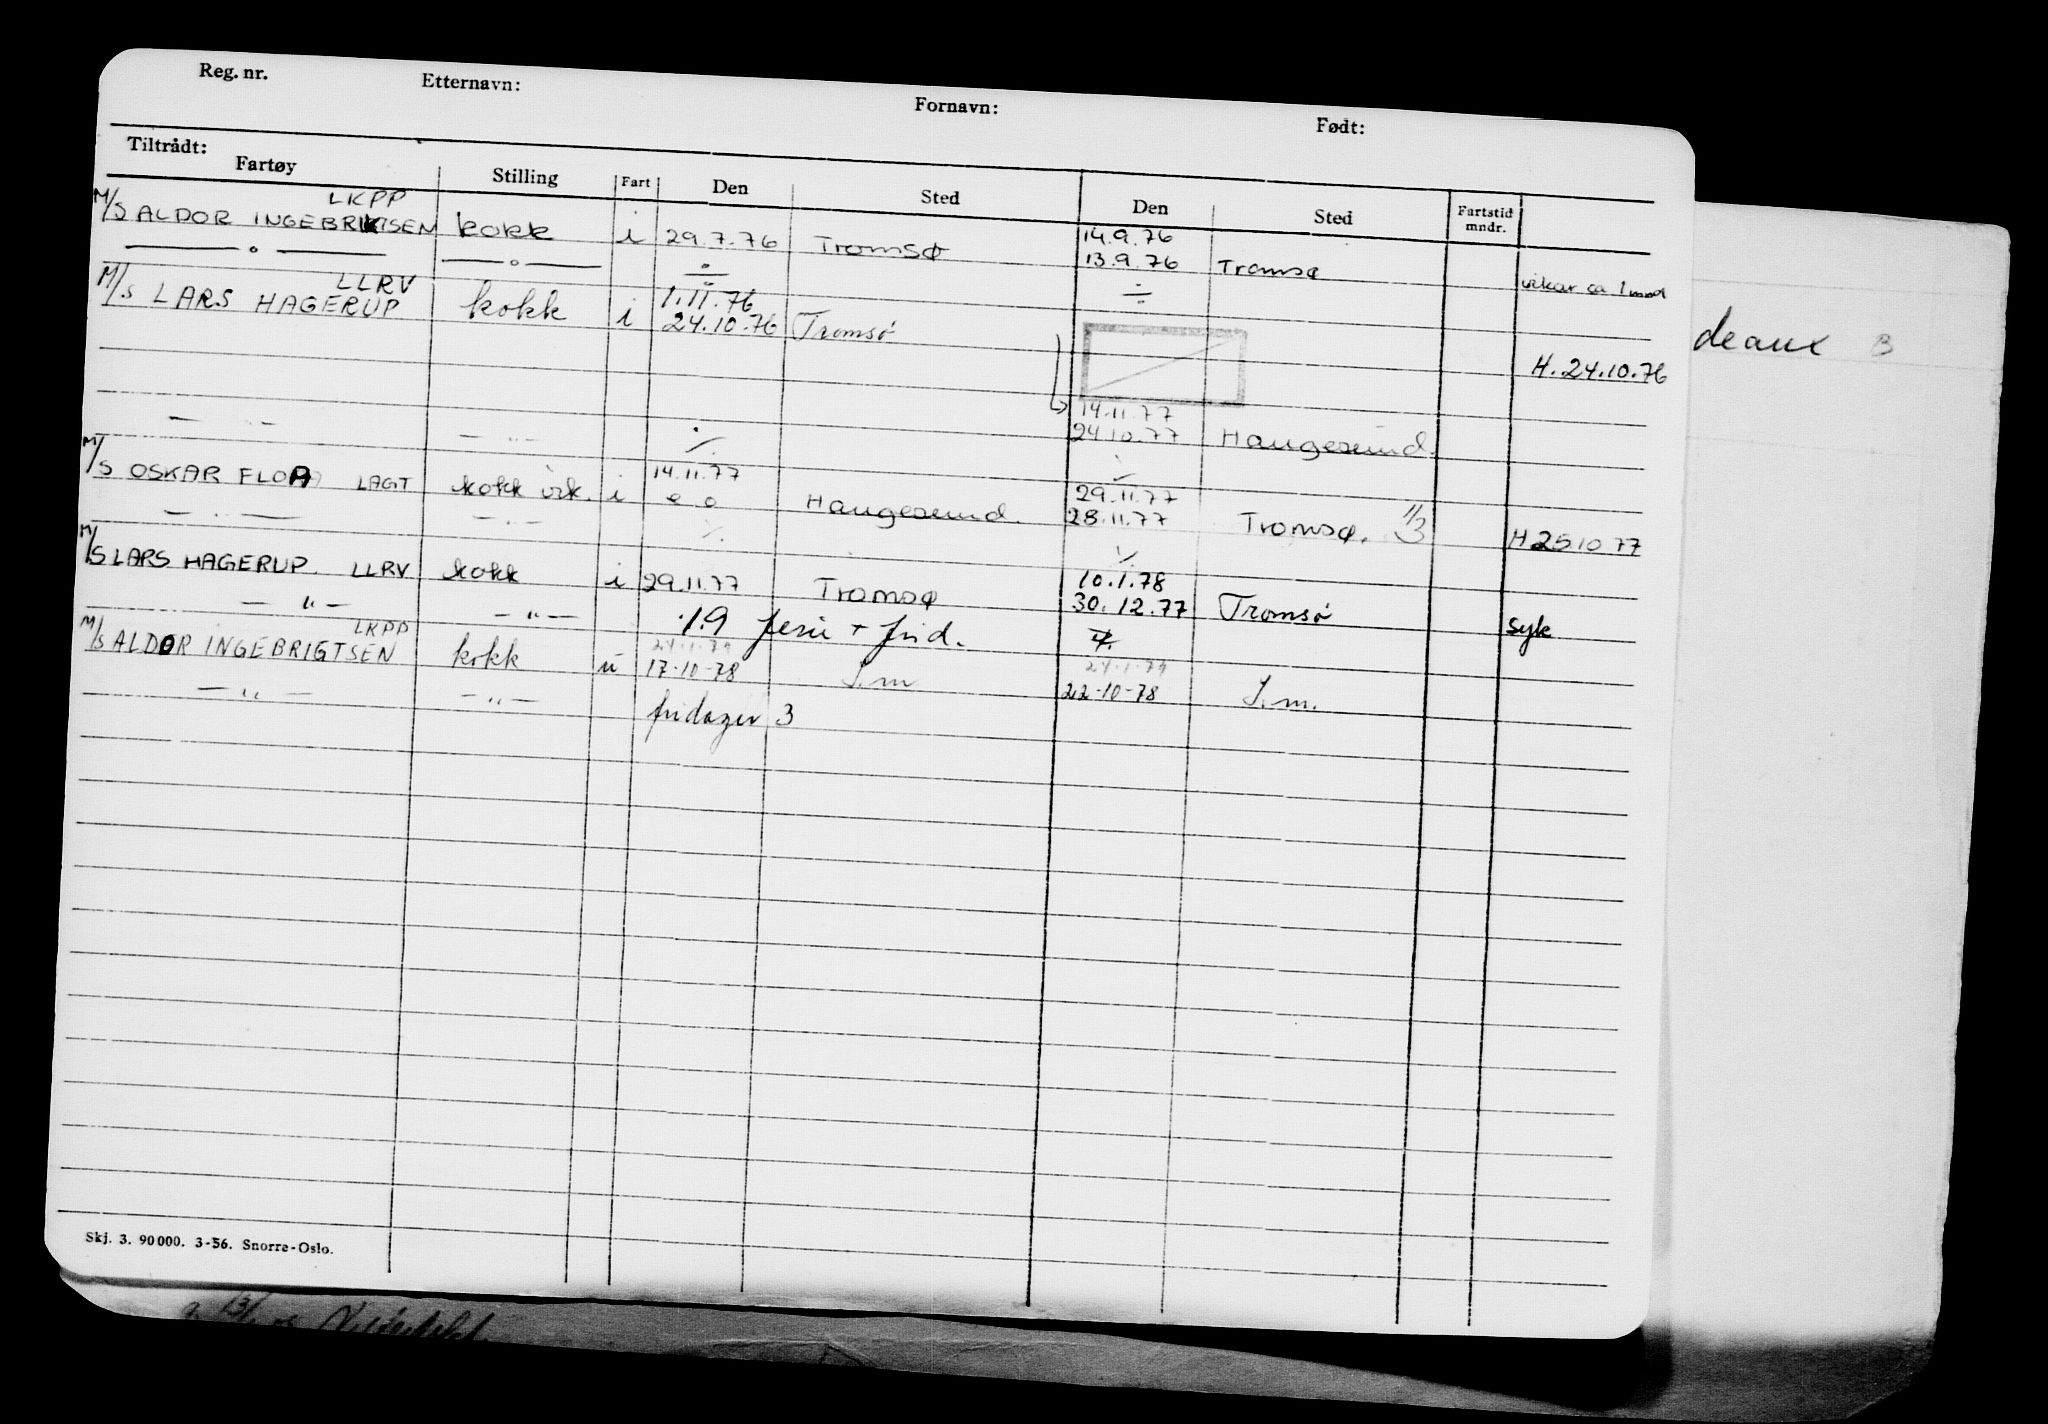 Reg. nr. Etternavn: Fornavn: Født:
Tiltrådt:
Fartøy Stilling Fart Den Sted Den Sted Fartstid mndr.
LKPP
M/S ALDOR INGEBRIKTSEN kokk i 29.7.76 Tromsø 14.9.76
— o — — o — ÷ 13.9.76 Tromsø vikar ca 1 mnd
LLRV 1.11.76 ÷
M/S LARS HAGERUP kokk i 24.10.76 Tromsø
H. 24.10.76
14.11.77
— " — — " — ÷ 24.10.77 Haugesund.
14.11.77 ÷
M/S OSKAR FLOA LAGT kokk vik. i e o Haugesund. 29.11.77
— " — — " — ÷ 28.11.77 Tromsø. 1/3 H 25 10 77
÷
M/S LARS HAGERUP. LLRV kokk i 29.11.77 Tromsø 10.1.78
— " — — " — 19 ferie + frid. 30.12.77 Tromsø syk
LKPP 24.1.79 ÷
M/S ALDOR INGEBRIGTSEN kokk u 17-10-78 I.m 24.1.79
— " — — " — fridager 3 22-10-78 I.m.
Skj. 3. 90000. 3-56. Snorre-Oslo.
deaux B